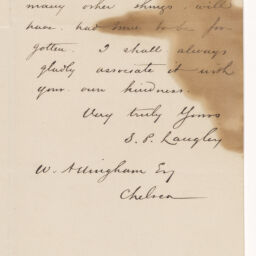 many other things, will
have had time to be for
gotten. I shall always
gladly associate it with
your own kindness.
Very truly Yours
S. P. Langley
W. Allingham Esq
Chelsea